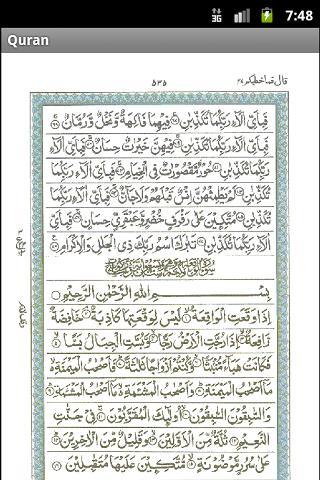 3G 7:48
Quran
قال فما خطبكم ۲۷ ۵۳۵
فَبِاَيِّ اٰلَآءِ رَبِّكُمَا تُكَذِّبٰنِ فِيْهِمَا فَاكِهَةٌ وَّنَخْلٌ وَّرُمَّانٌ
فَبِاَيِّ اٰلَآءِ رَبِّكُمَا تُكَذِّبٰنِ فِيْهِنَّ خَيْرٰتٌ حِسَانٌ فَبِاَيِّ اٰلَآءِ
رَبِّكُمَا تُكَذِّبٰنِ حُوْرٌ مَّقْصُوْرٰتٌ فِي الْخِيَامِ فَبِاَيِّ اٰلَآءِ رَبِّكُمَا
تُكَذِّبٰنِ لَمْ يَطْمِثْهُنَّ اِنْسٌ قَبْلَهُمْ وَلَا جَآنٌّ فَبِاَيِّ اٰلَآءِ رَبِّكُمَا
تُكَذِّبٰنِ مُتَّكِـِٕيْنَ عَلٰى رَفْرَفٍ خُضْرٍ وَّعَبْقَرِيٍّ حِسَانٍ فَبِاَيِّ
اٰلَآءِ رَبِّكُمَا تُكَذِّبٰنِ تَبٰرَكَ اسْمُ رَبِّكَ ذِي الْجَلٰلِ وَالْاِكْرَامِ
بِسْمِ اللّٰهِ الرَّحْمٰنِ الرَّحِيْمِ
اِذَا وَقَعَتِ الْوَاقِعَةُ لَيْسَ لِوَقْعَتِهَا كَاذِبَةٌ خَافِضَةٌ
رَّافِعَةٌ اِذَا رُجَّتِ الْاَرْضُ رَجًّا وَّبُسَّتِ الْجِبَالُ بَسًّا
فَكَانَتْ هَبَآءً مُّنْۢبَثًّا وَّكُنْتُمْ اَزْوَاجًا ثَلٰثَةً فَاَصْحٰبُ الْمَيْمَنَةِ
مَآ اَصْحٰبُ الْمَيْمَنَةِ وَاَصْحٰبُ الْمَشْـَٔمَةِ مَآ اَصْحٰبُ الْمَشْـَٔمَةِ
وَالسّٰبِقُوْنَ السّٰبِقُوْنَ اُولٰٓئِكَ الْمُقَرَّبُوْنَ فِيْ جَنّٰتِ
النَّعِيْمِ ثُلَّةٌ مِّنَ الْاَوَّلِيْنَ وَقَلِيْلٌ مِّنَ الْاٰخِرِيْنَ
عَلٰى سُرُرٍ مَّوْضُوْنَةٍ مُّتَّكِـِٕيْنَ عَلَيْهَا مُتَقٰبِلِيْنَ